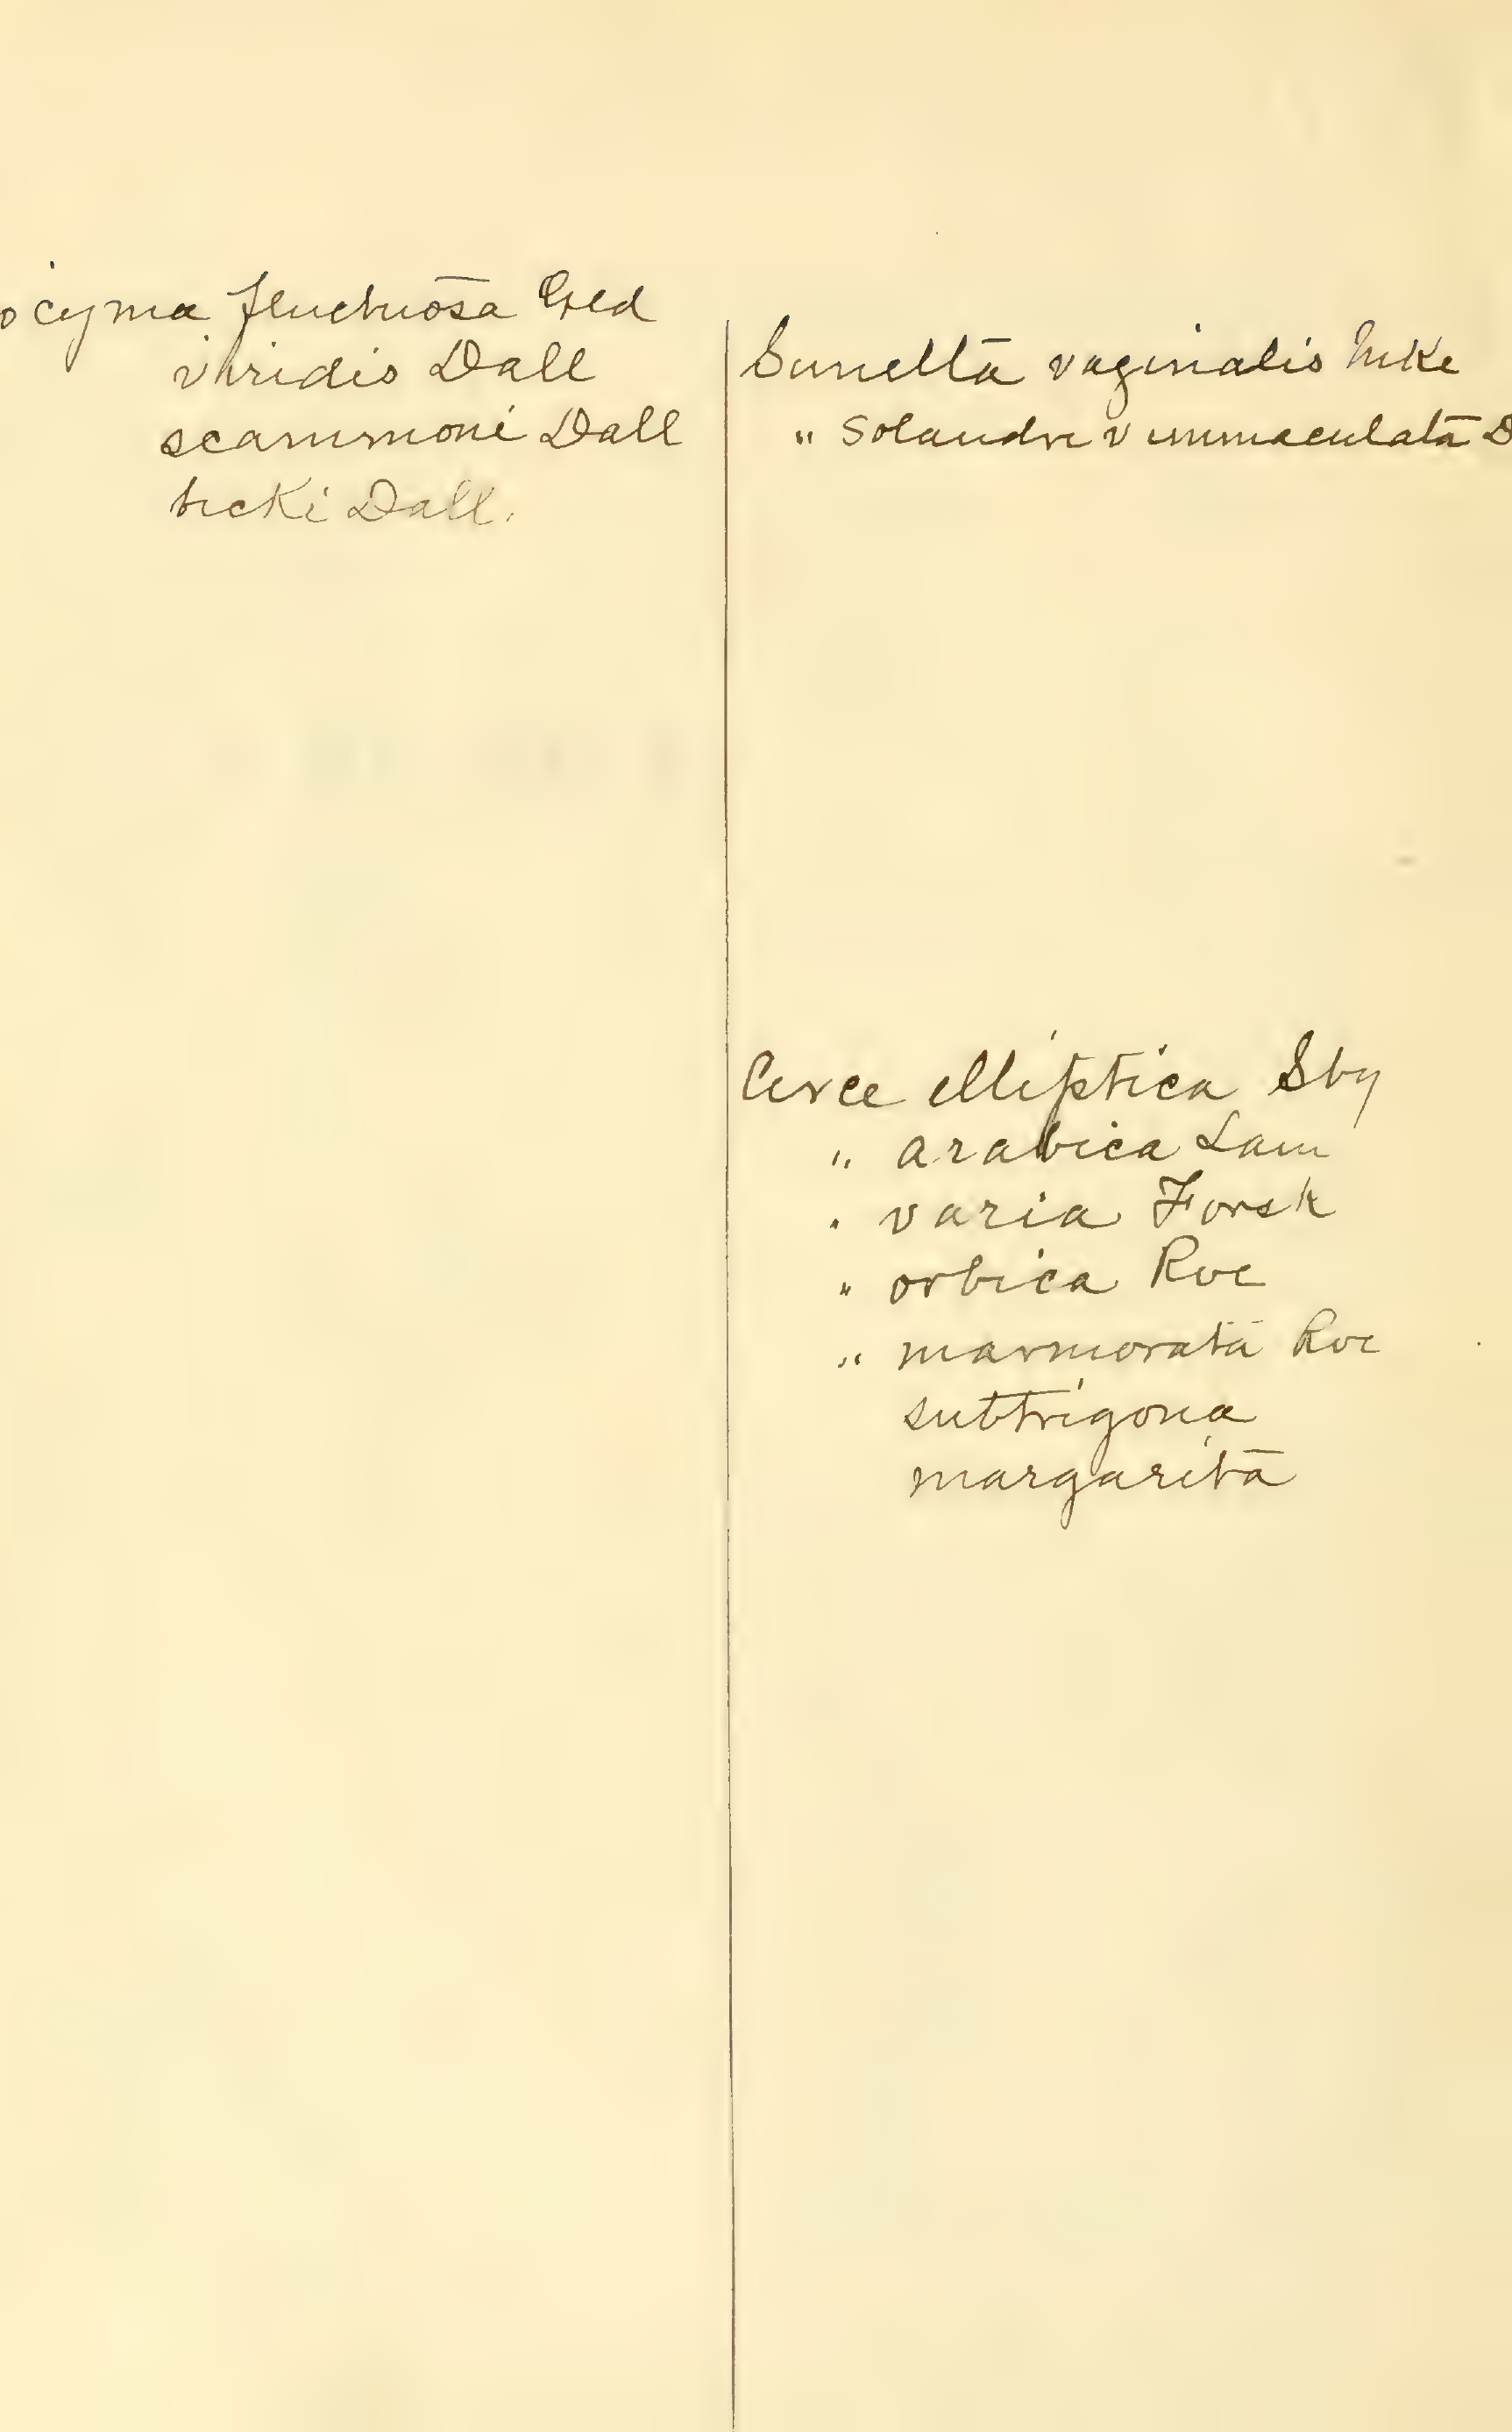 ocyma fluctuosa Gld
viridis Dall
scammoni Dall
becki Dall.
Sunetta vaginalis Mke
" Solandri v immaculata D
Circe elliptica Sby
" arabica Lam
" varia Forsk
" orbica Rve
" marmorata Rve
subtrigona
margarita